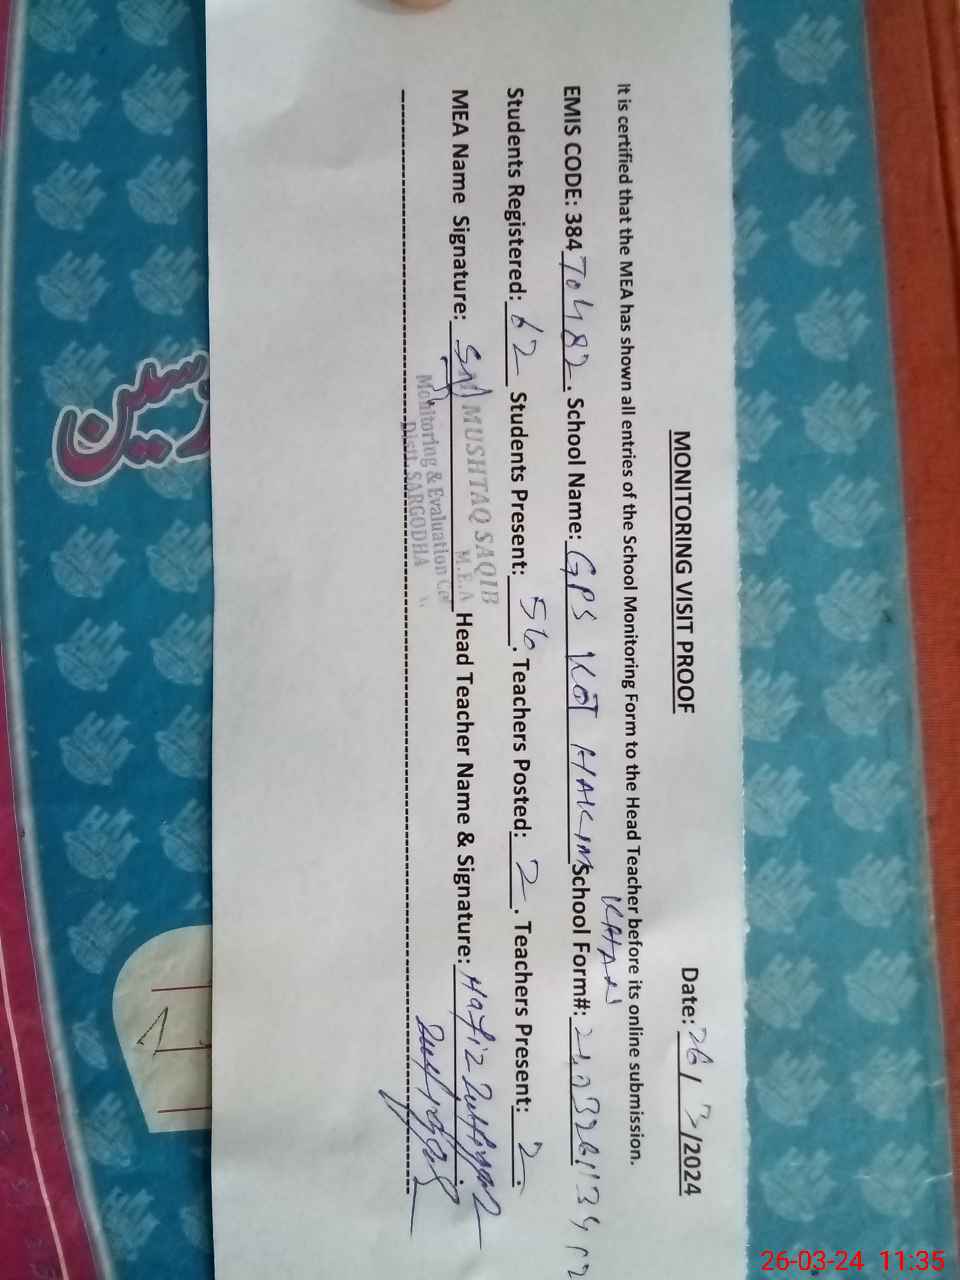 MONITORING VISIT PROOF
Date: 26/3/2024
It is certified that the MEA has shown all entries of the School Monitoring Form to the Head Teacher before its online submission.
EMIS CODE: 38470482. School Name: GPS KOT HAKIM KHAN School Form#:
Students Registered: 62 Students Present: 56. Teachers Posted: 2. Teachers Present: 2.
MEA Name Signature: Head Teacher Name & Signature: Hafiz
MUSHTAQ SAQIB
M.E.A
Monitoring & Evaluation
Distt. SARGODHA
26-03-24 11:35